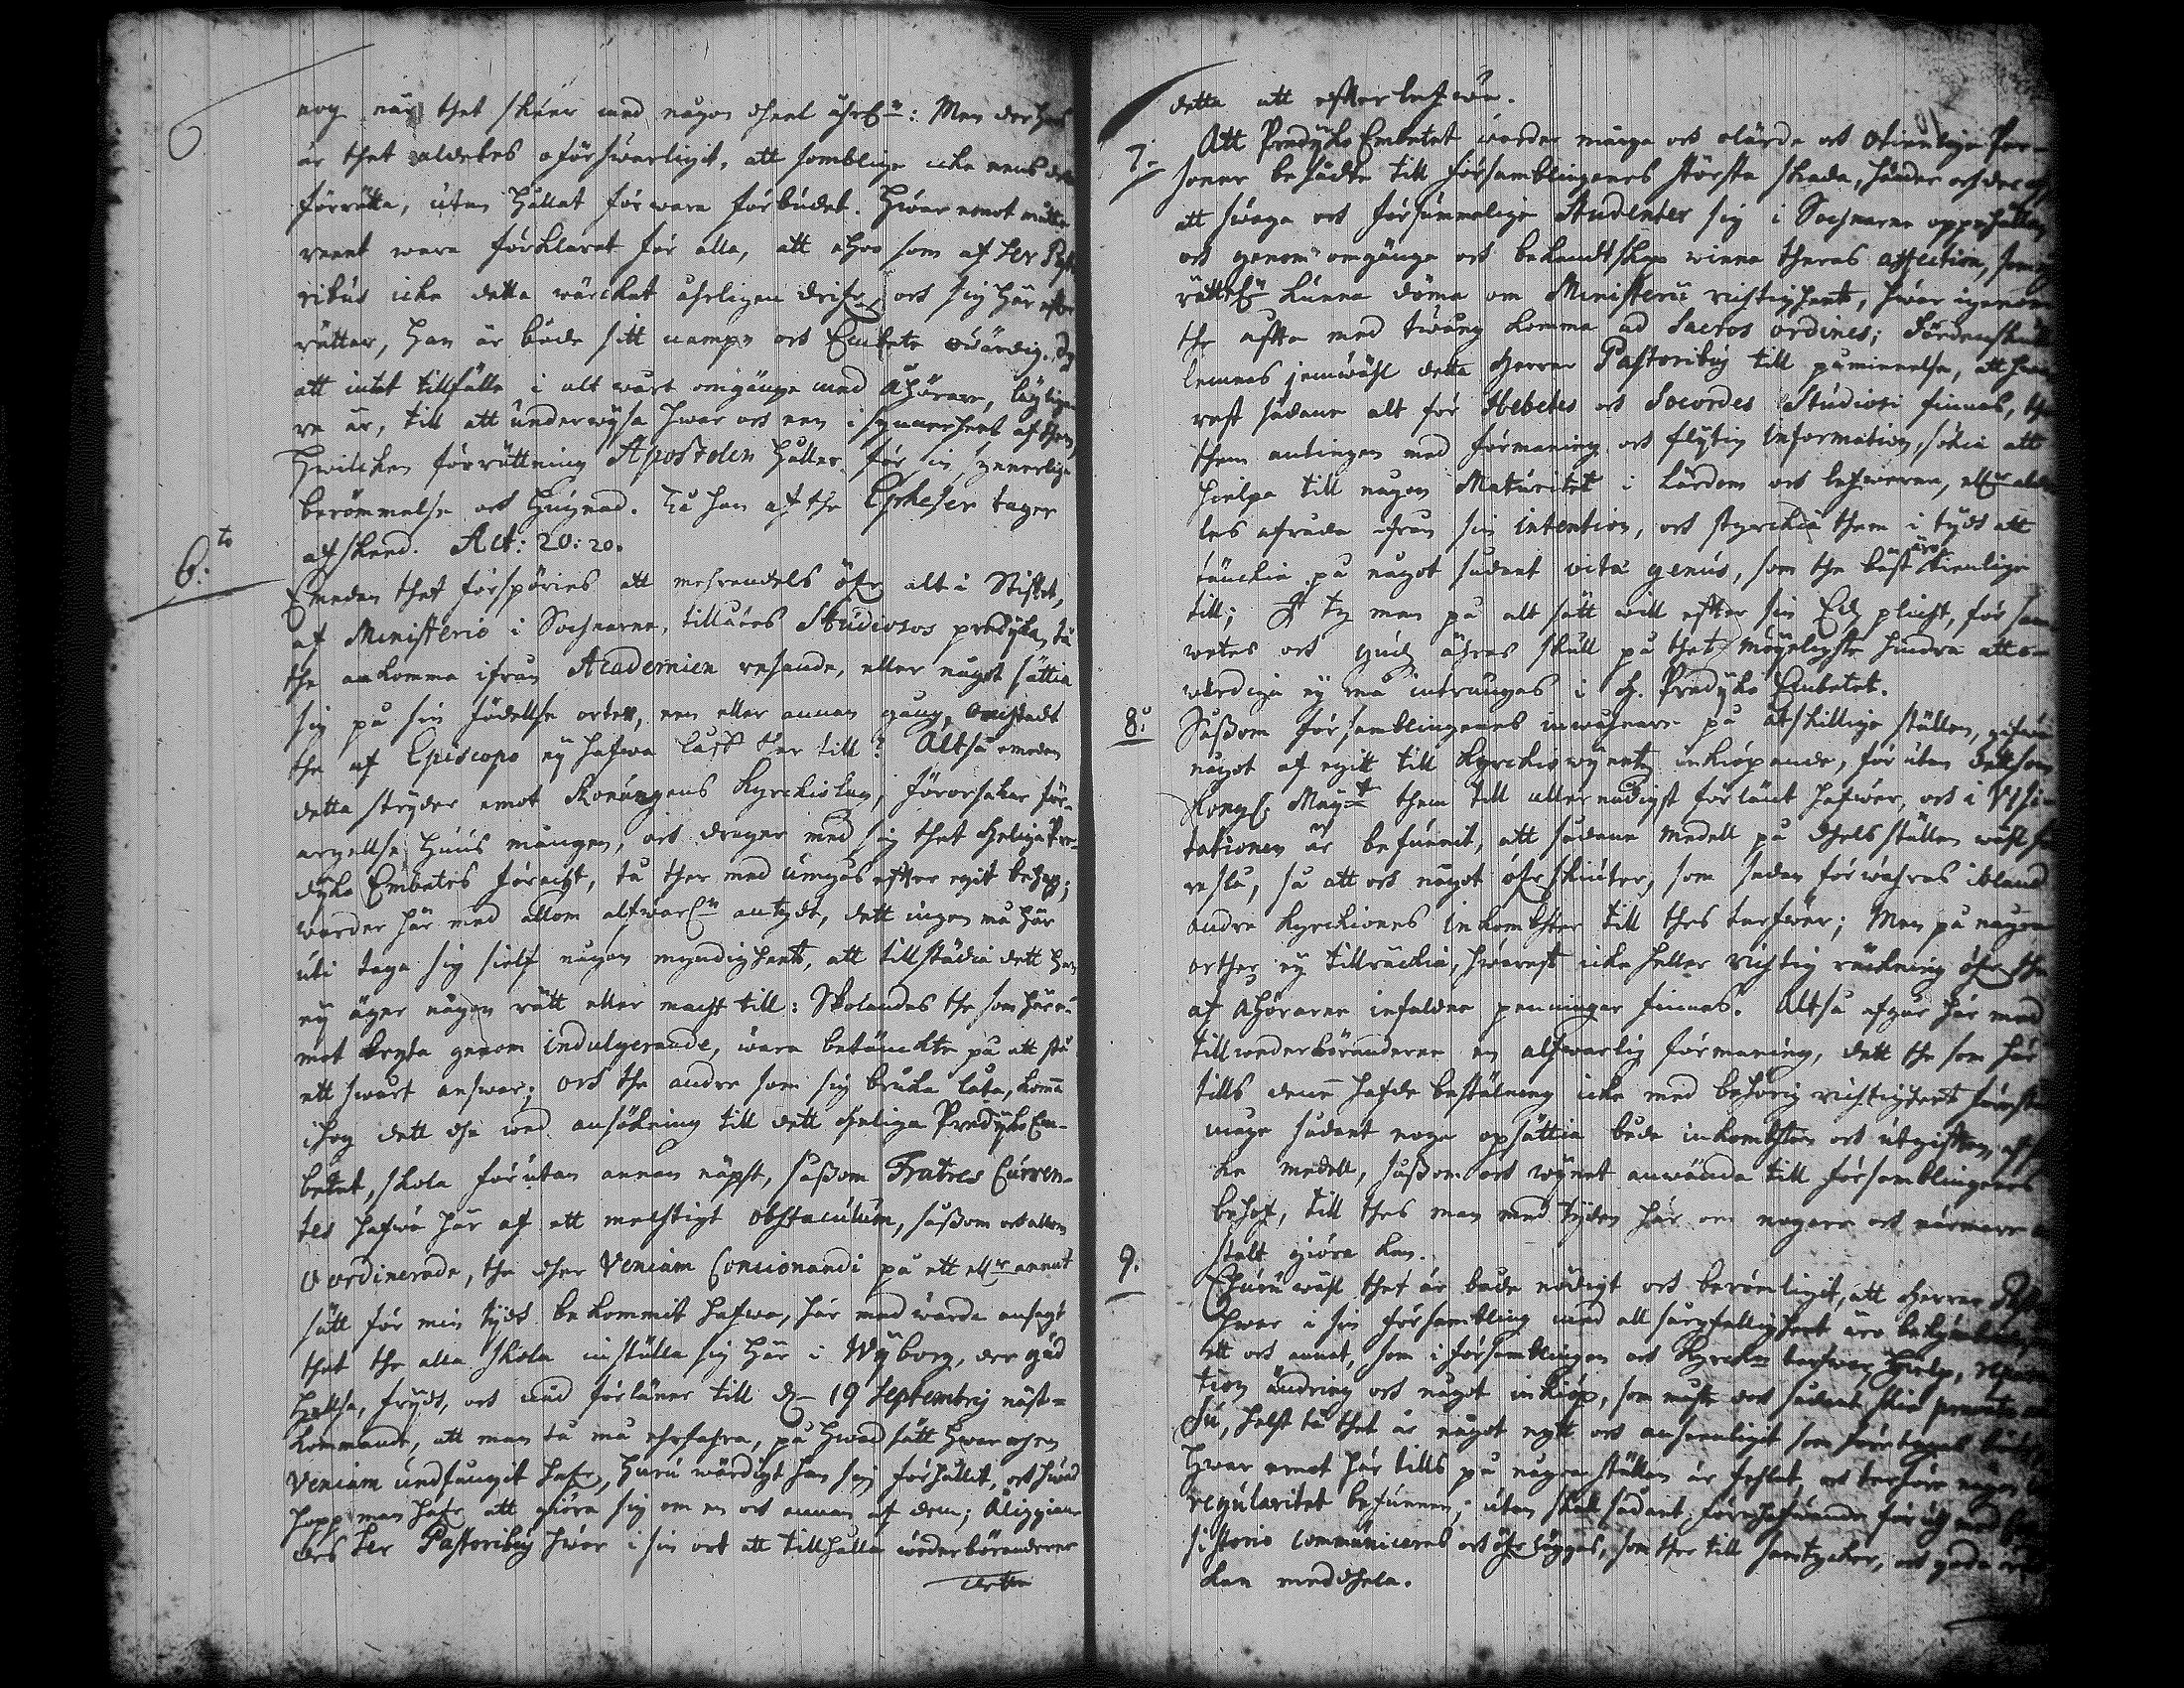 nog när thet skeer med någon deel åhrl:n: Men der hos
är thet aldeles oförswarligit, att somblige icke eens dett
förrätta, utan hållat för wara förbudet. Hwar emot måtte
reent wara förklarat för alla, att ehoo som af Her Pasto
ribus icke detta wärcket ährligen drifr, och sig här efter
rättar, han är både sitt nampn och Embete owärdig. Ty
att intet tillfälle i alt wårt omgänge med Åhörare, läglige
re är, till att underwysa hwar och een i synnerheet af them,
Hwilcken förrättning Apostolen håller för sin synnerlige
berömmelse och hugnad. Tå han af the Epheser tager
afskeed. Act: 20: 20.
6:to
Emedan thet förspöries att mehrendels öfr alt i Stiftet,
af Ministerio i Sochnarne, tillåtes Studiosos predyka, tå
the ankomma ifrån Academien resande, eller något sättia
sig på sin födellse orten, een eller annan gång, oansedt
the af Episcopo ey hafwa låff ther till? Altså emedan
detta stryder emot Konungens Kyrckiolag, förorsakar för-
argellse hoos mången, och drager med sig thet Helige Pre-
dyko Embetes föracht, tå ther med umgås efter egit behag;
warder här med allom alfwarl:n antydt, dett ingen må här
uti taga sig sielf någon myndigheet, att tillstädia dett han
ey äger någon rätt eller macht till: Skolandes the som häre-
mot bryta genom indulgerande, wara betänckte på att stå
ett swårt answar; och the andre som sig bruka låta, komma
ihog dett the wed ansökning till dett Helige Predyko Em-
betet, skola förutan annan näpst, såßom Fratres Curren-
tes hafwa här af ett mechtigt obstaculum, såßom och allom
Oordinerade, the ther Veniam Concionandi på ett ell:r annat
sätt för min tydh bekommit hafwa, här med warda ansagt
thet the alla skola inställa sig här i Wyborg, der gud
Helsa, frydh, och nåd förläner till d. 19 Septembris näst-
kommande, att man tå må ehrfahra, på hwad sätt hwar then
Veniam undfångit hafr, huru wärdigt han sig förhållit, och hwad
hopp man hafr att giöra sig om en och annan af dem; Åliggian-
des her Pastoribus hwar i sin ort att tillhålla wederböranderne
detta
detta att efterlefwa.
7:
Att Predyko Embetet warder många och olärde och otienlige Per-
soner besådt till församblingenes största skada, händer och der af
att swaga och försummelige Studenter sig i Sochnarne oppehålla,
och genom omgänge och bekandtskap winna theras affection, som ey
rättel:n kunna döma om Ministerii richtigheet, hwar igenom
the offta med twång komma ad Sacros ordines; Fördenskull
lemnas jemwähl detta Herrar Pastoribus till påminnelse, att hwa
rest sådane alt för Hebetes och Socordes Studiosi finnas, the
them antingen med förmaning och flytig information, sökia att
hielpa till någon Maturitet i Lärdom och lefwerne, ell:r alde
les afråda ifrån sin intention, och styrckia them i tydh att
tänckia på något sådant vitæ genus, som the bäst äro tienlige
till; Ty man på alt sätt will efter sin Edz plicht, för sam
wetes och gudz ähras skull på thet möyeligste hindra att o-
wärdige ey må intrengas i H. Predyko Embetet.
8:
Såßom församblingenes inwåhnare på åtskillige ställen, gifwa
något af egit till Kyrckiowynetz inkiöpande, för utan dett som
Kongl: May:tt them till allernådigst förlänt hafwer, och i Visi-
tationen är befunnit, att sådane medell på theels ställen wähl för
reslå, så att och något öfrskiuter, som sedan förwahras ibland
andre Kyrckiones inkombster till thes tarfwer; Men på några
orther ey tillräckia, hwarest icke heller richtig räckning öfr the
af Åhörarne infaldne penningar finnes. Altså afgår här med
till wederböranderne en alfwarlig förmaning, dett the som här
tills denne hafde bestälning icke med behörig richtigheet förestå
måge sådant noga opsättia både inkombsten och utgiften af
ke medell, såßom och wynet anwända till församblingenes
behof, till thes man med tyden här om nogare och närmare an
stalt giöra kan.
9.
Ehuruwähl thet är både nödigt och berömligit, att Herrar Pasto
hwar i sin försambling med all sorgfelligheet äro bekymbrade
ett och annat, som i församblingen och Kyrckan tarfwar hielp, repara
tion ändring och något inkiöp, som måste doch sådant skie
Så, helst tå thet är något nytt och ansenligit som företages
Hwar emot här tills på några ställen är fehlat, och therföre någon
regularitet befunnen; utan skall sådant förehafwande för uth med
sistorio communiceras och öfrläggas, som ther till samtycker, och goda råd
kan meddehla.